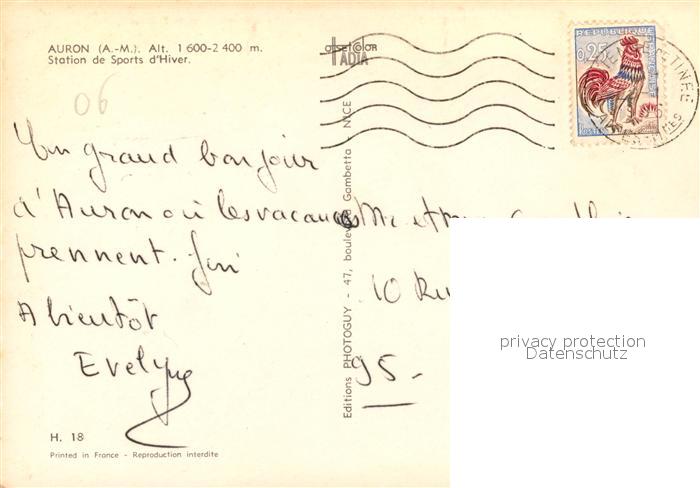 AURON (A.-M.). Alt. 1 600-2 400 m.
Station de Sports d'Hiver.
offset color
ADIA
REPUBLIQUE FRANÇAISE
0,25
POSTES
06
Un grand bonjour
d'Auron où les vacances
prennent fin
A bientôt
Evelyne
Mr et Mme
10 Rue
95-
Editions PHOTOGUY - 47, boulevard Gambetta - NICE
privacy protection
Datenschutz
H. 18
Printed in France - Reproduction interdite